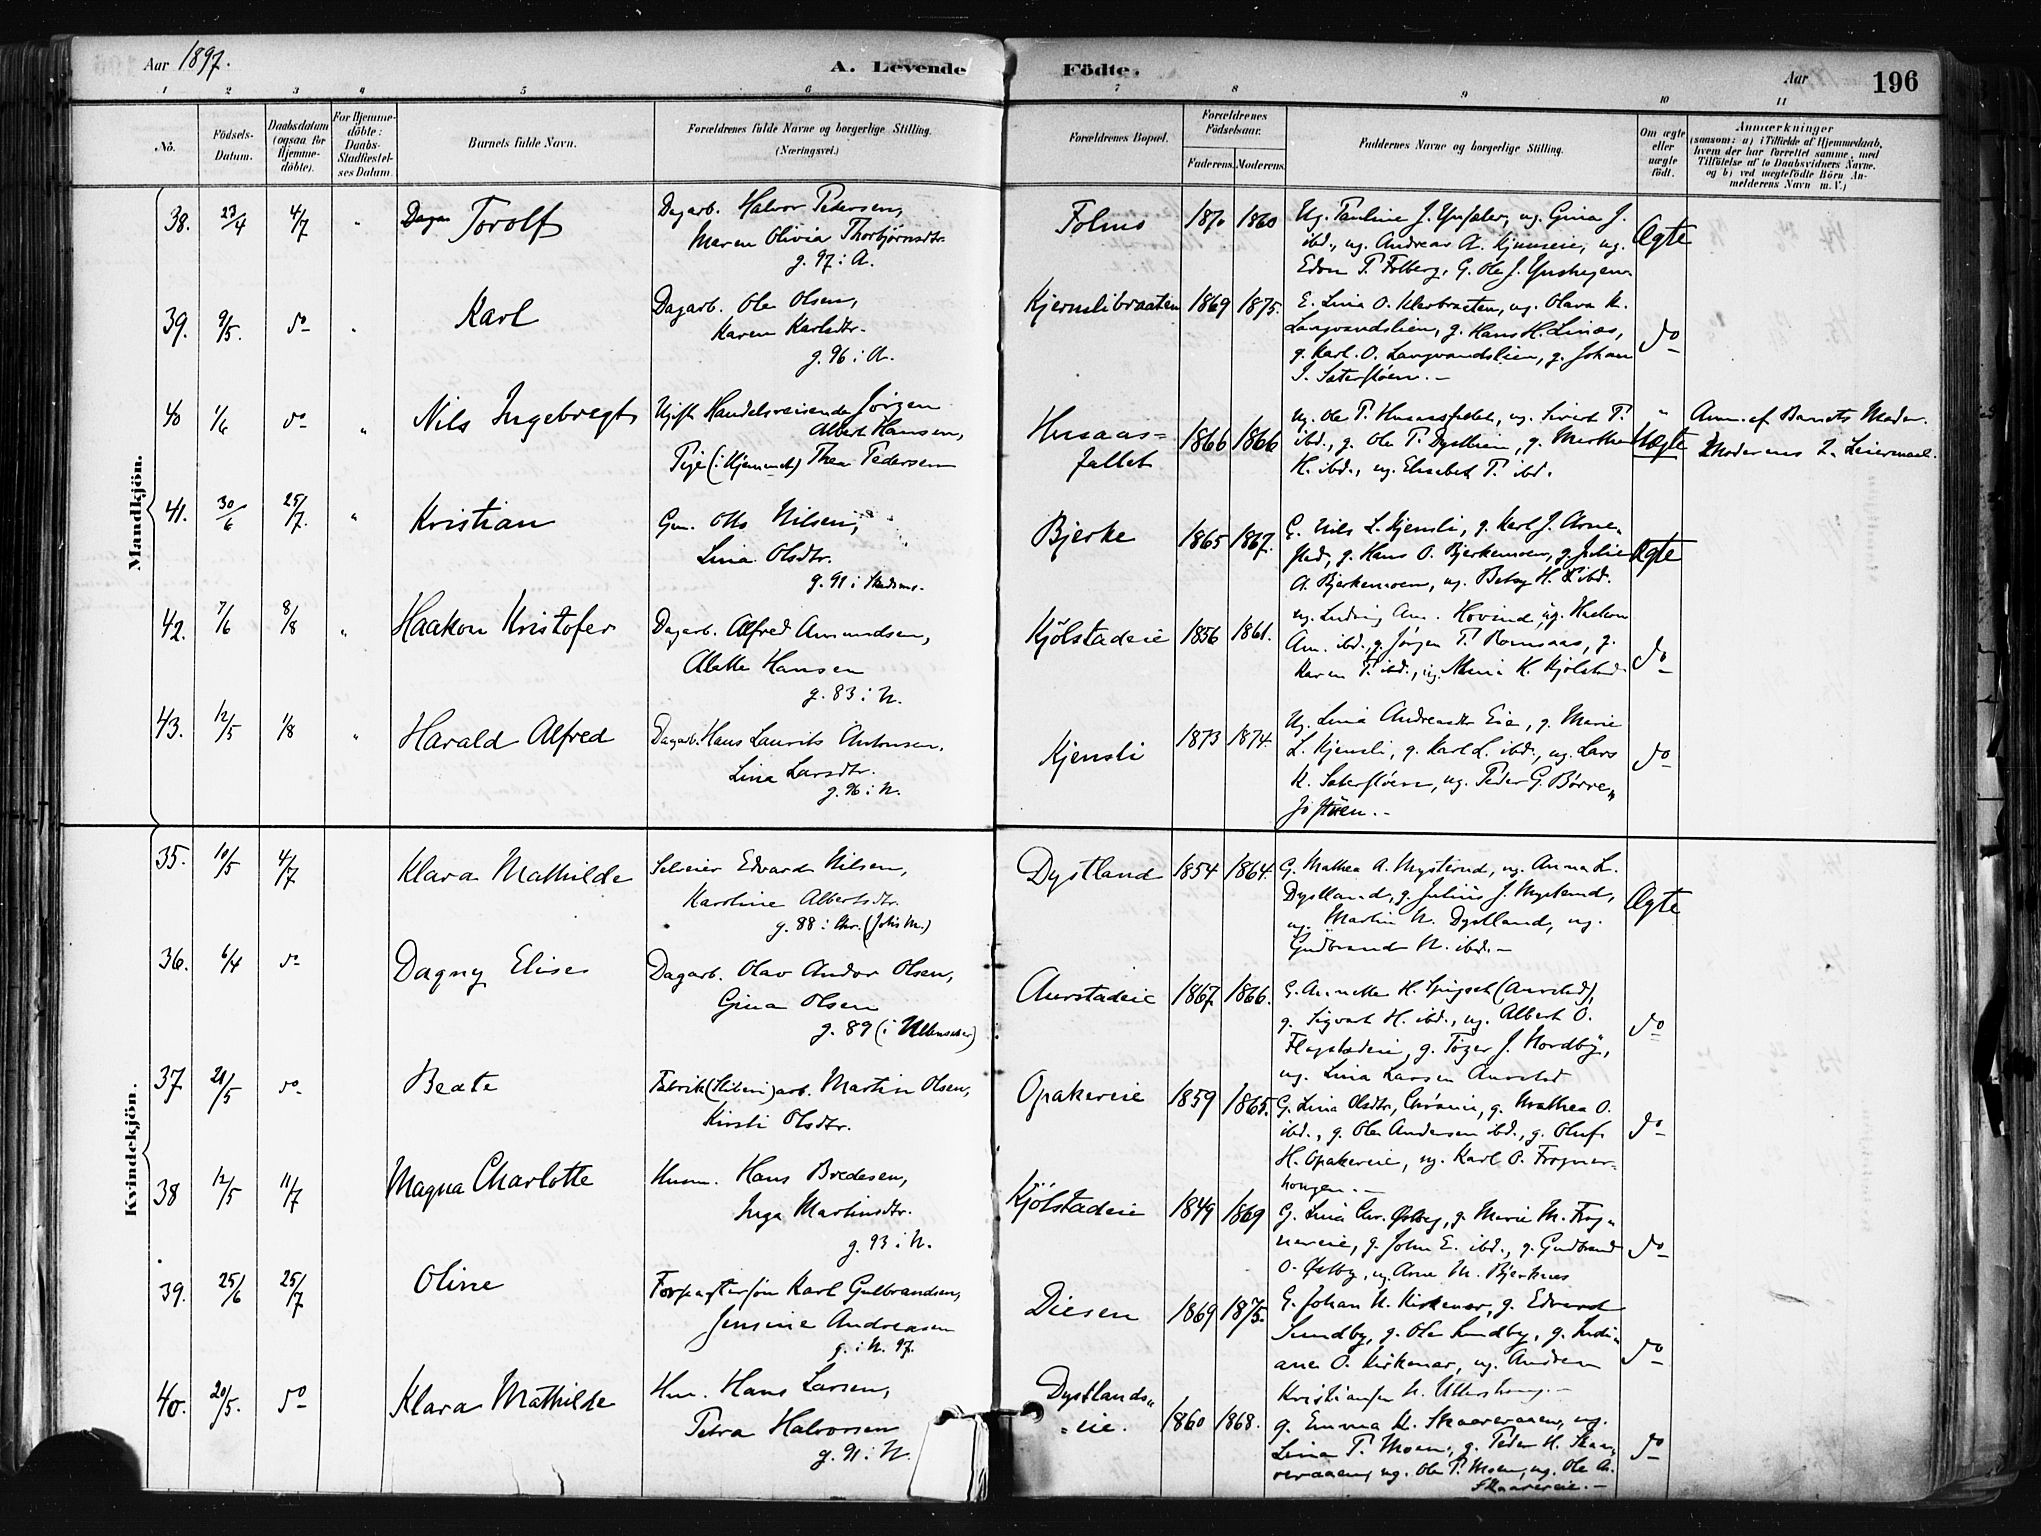 Aar 1897.
A. Levende Födte.
Aar
196
1 2 3 4 5 6 7 8 9 10 11
No.
Födsels-Datum.
Daabsdatum (ogsaa for Hjemme-döbte).
For Hjemme-döbte: Daabs-Stadfæstel-ses Datum.
Barnets fulde Navn.
Forældrenes fulde Navne og borgerlige Stilling. (Næringsvei.)
Forældrenes Bopæl.
Forældrenes Födselsaar.
Faderens. Moderens.
Faddernes Navne og borgerlige Stilling.
Om ægte eller uægte födt.
Anmærkninger
(saasom: a) i Tilfælde af Hjemmedaab, hvem der har forrettet samme, med Tilföielse af to Daabsvidners Navne. og b) ved uægtefödte Börn An-melderens Navn m. V.)
Mandkjön.
38. 23/4 4/7 " Torolf
Dagarb. Halvor Pedersen,
Maren Olivia Thorbjörnsdtr.
g. 97 i A.
Folmo 1870 1860
Ug. Pauline J. ug. Gina J.
ibd., ug. Andreas A. ug.
T. Folberg, G. Ole J.
Ægte
39. 9/5. do " Karl
Dagarb. Ole Olsen,
Karen Karlsdtr.
g. 96 i A.
Kjernslibraaten 1869 1875.
E. Lina O. ug. Olava K.
Langvandslien, g. Hans H. Linæs,
g. Karl O. Langvandslien, g. Johan
J. Sæterfløen. -
do
40 1/6 do " Nils Ingebregt
Ugift Handelsreisende Jörgen
Albert Hansen,
Pige (i Hjemmet) Thea Pedersen
Husaas=
fallet 1866 1866
ug. Ole T. Husaasfallet, ug. Sivert T.
ibd., g. Ole T. Dystlien, g. Marthe
K. ibd., ug. Elisabet T. ibd.
"
Uægte
Anm. af Barnets Moder.
Moderens 2. Leiermaal.
41. 30/6 25/7. " Kristian
Gm. Otto Nilsen,
Lina Olsdtr.
g. 91 i
Bjerke 1865 1867.
G. Nils L. Kjensli, g. Karl J. Arne-
stad, g. Hans O. Bjerkemoen, g. Julie
A. Bjerkemoen, ug. Betsy H. ibd.
Ægte
42. 7/6 8/8 " Haakon Kristofer
Dagarb. Alfred Amundsen,
Alette Hansen
g. 83 i N.
Kjölstadeie 1856 1861.
ug. Ludvig Am. Hovind, ug. Haakon
Am. ibd., g. Jörgen T. g.
Karen T. ibd., ug. Maria K. Kjölstad
do
43. 12/5 1/8 " Harald Alfred
Dagarb. Hans Laurits Antonsen.
Lina Larsdtr.
g. 96 i N.
Kjensli 1873 1874.
Ug. Lina Andreasdtr. Eie, g. Marie
L. Kjensli, g. Karl L. ibd., ug. Lars
K. Sæterfløen, ug. Peder G. Børre-
do
Kvindekjön.
35. 10/5 4/7 Klara Mathilde
Selveier Edvard Nilsen,
Karoline Albertsdtr.
g. 88 i Chr. (Johs M.)
Dystland 1854 1864.
G. Mathea A. ug. Anna L.
Dystland, g. Julius J.
ug. Martin N. Dystland, ug.
Gudbrand N. ibd. -
Ægte
36. 6/4 do Dagny Elise
Dagarb. Olav Andor Olsen,
Gina Olsen
g. 89 (i Ullensaker)
Aurstadeie 1867. 1866.
G. Annette H. (Aurstad),
g. Sigvart H. ibd., ug. Albert O.
Flagstadeie, g. J. Nordby,
ug. Lina Larsen Aurstad
do
37 21/5 do Beate
Fabrik(Sliberi)arb. Martin Olsen,
Kirsti Olsdtr.
Opakereie 1859 1865.
G. Lina Olsdtr, g. Mathea O.
ibd., g. Ole Andersen ibd., g. Oluf
H. Opakereie, ug. Karl O. Frogner-
haugen. -
do
38 12/5 11/7 Magna Charlotte
Husm. Hans Bredesen,
Inga Martinsdtr.
g. 93 i N.
Kjölstadeie 1849 1869
G. Lina Chr. Østby, g. Marie M. Frog-
nereie, g. John E. ibd., g. Gudbrand
O. Østby, ug. Arne M. Bjerknes
do
39. 25/6 25/7 Oline
Forpagtersøn Karl Gulbrandsen,
Jensine Andreasen
g. i N. 97.
Diesen 1869 1875.
G. Johan N. Kirkener, g. Edvard
Sundby, g. Ole Sundby, g. Indi-
anea O. Kirkener, ug. Andreas
Kristiansen
do
40. 20/5. do Klara Mathilde
Hm. Hans Larsen,
Petra Halvorsen
g. 91 i N.
Dystlands-
eie. 1860 1868.
g. Emma K. Skaareraaen, ug.
Lina T. Moen, g. Peder N. Skaa-
reraaen, ug. Ole T. Moen, ug. Ole A.
Skaarereie. -
do